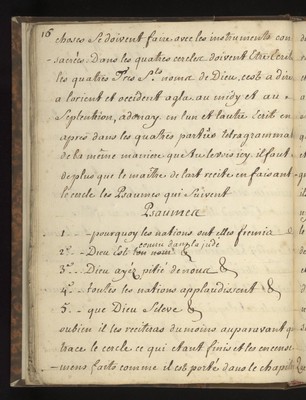 16
choses se doivent faire avec les instruments con
sacrées. Dans les quatres cercles doivent être écrit
les quatres Tres Sts noms de Dieu, cest a dire
a lorient et occident agla au midy et au
Septentrion, adonay en lun et lautre Ecrit en
apres dans les quatres parties tetragrammat
de la même maniere que tu le vois icy il faut
de plus que le maître de l'art recite en faisant
le cercle les Psaumes qui suivent
Psaumes
1 - pourquoy les nations ont elles fremis
2°. - Dieu est connu dans la judé son nom &
3°. - Dieu ayez pitié de nous &
4°. - toutes les nations applaudissent &
5°. - que Dieu Seleve &
oubien il les recitera du moins auparavant q
trace le cercle ce qui etant finis et les encense
mens faits comme il est porté dans le chapit